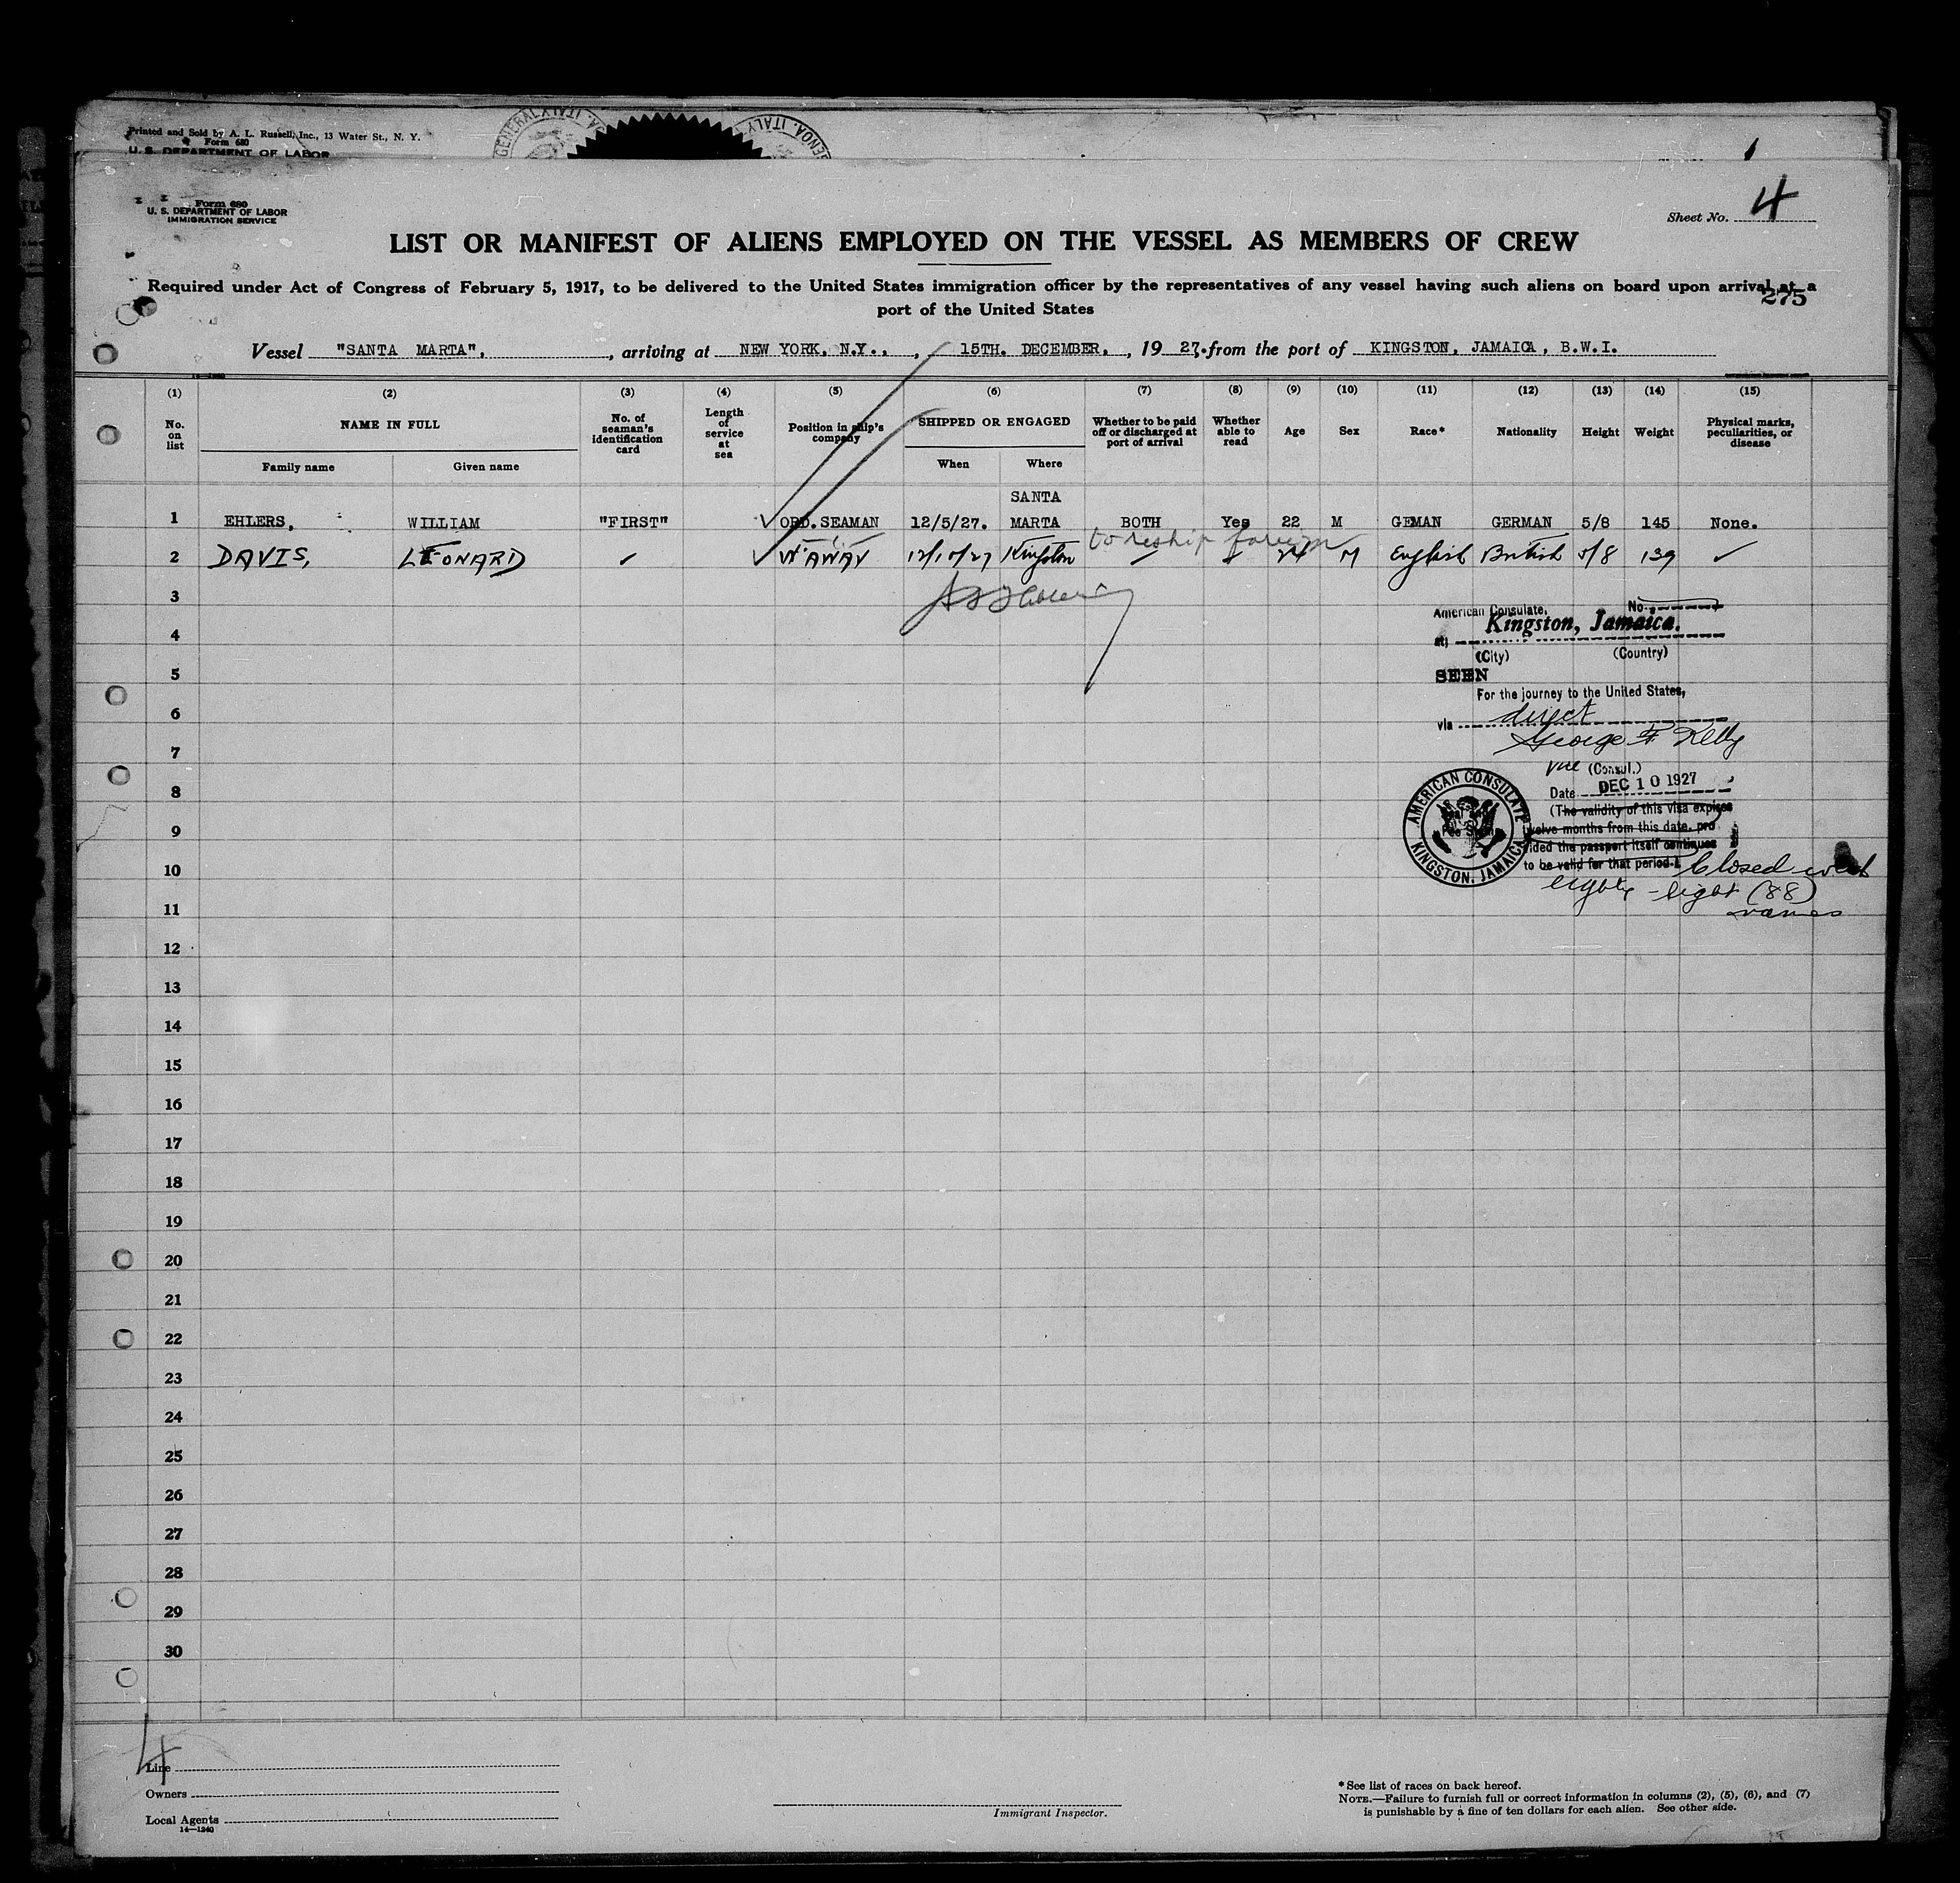 Printed and Sold by A. L. Russell, Inc., 13 Water St., N. Y.
Form 680
U. S. DEPARTMENT OF LABOR
GENERAL ITALY
GENOA, ITALY
Form 680
U. S. DEPARTMENT OF LABOR
IMMIGRATION SERVICE
Sheet No. 4
LIST OR MANIFEST OF ALIENS EMPLOYED ON THE VESSEL AS MEMBERS OF CREW
Required under Act of Congress of February 5, 1917, to be delivered to the United States immigration officer by the representatives of any vessel having such aliens on board upon arrival at a
port of the United States
275
Vessel "SANTA MARTA", , arriving at NEW YORK, N.Y., , 15TH. DECEMBER. , 19 27. from the port of KINGSTON, JAMAICA, B.W.I.
(1) (2) (3) (4) (5) (6) (7) (8) (9) (10) (11) (12) (13) (14) (15)
No. on list
NAME IN FULL
Family name
Given name
No. of seaman's identification card
Length of service at sea
Position in ship's company
SHIPPED OR ENGAGED
When
Where
Whether to be paid off or discharged at port of arrival
Whether able to read
Age
Sex
Race*
Nationality
Height
Weight
Physical marks, peculiarities, or disease
1 EHLERS, WILLIAM "FIRST" ORD. SEAMAN 12/5/27. SANTA MARTA BOTH Yes 22 M GEMAN GERMAN 5/8 145 None.
to reship foreign
2 DAVIS, LEONARD ✓ W'AWAY 12/10/27 Kingston 24 M English British 5/8 139 ✓
3
4
5
6
7
8
9
10
11
12
13
14
15
16
17
18
19
20
21
22
23
24
25
26
27
28
29
30
American Consulate, No.
at Kingston, Jamaica.
(City) (Country)
SEEN
For the journey to the United States,
via direct
George F Kelly
Vice (Consul.)
Date DEC 10 1927
(The validity of this visa expires
twelve months from this date, pro
vided the passport itself continues
to be valid for that period.)
Closed with
eighty-eight (88)
names
AMERICAN CONSULATE
KINGSTON, JAMAICA
4
Line
Owners
Local Agents
14—1240
Immigrant Inspector.
* See list of races on back hereof.
NOTE.—Failure to furnish full or correct information in columns (2), (5), (6), and (7)
is punishable by a fine of ten dollars for each alien. See other side.